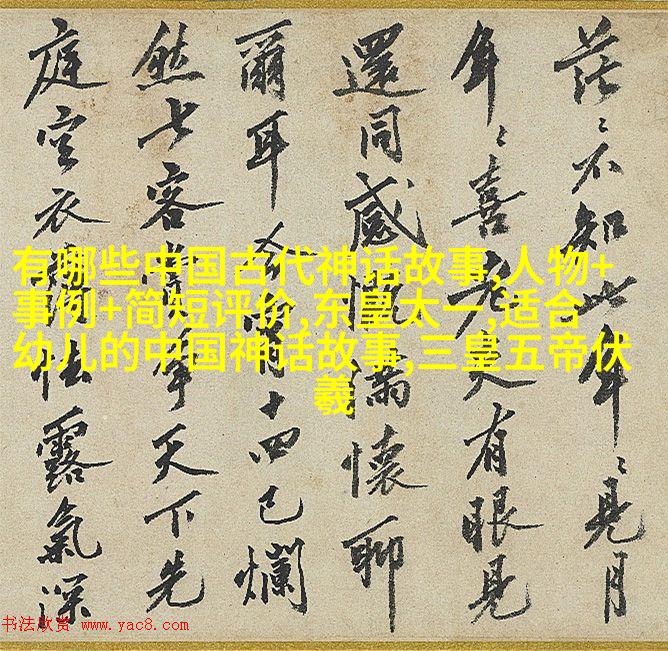 茫〻不知此年〻見月
年〻喜老夫有眼見
還同感慨滿懷聊
爾耳今宵十四已爛
然七客年天下先
庭空衣怯露氣深
有哪些中国古代神话故事,人物+
事例+简短评价,东皇太一,适合
幼儿的中国神话故事,三皇五帝伏
羲
书法欣赏 www.yac8.com